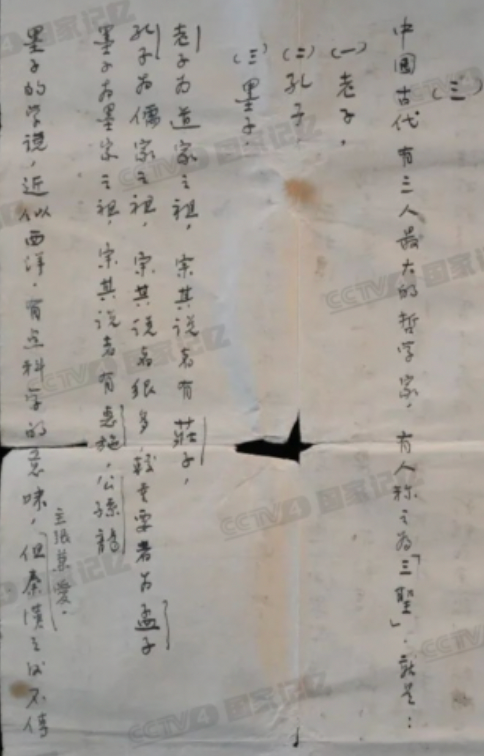 (三)
中國古代有三人最大的哲学家，有人称之为「三聖」，就是：
(一)老子，
(二)孔子，
(三)墨子，
老子为道家之祖，宗其说者有莊子，
孔子为儒家之祖，宗其说者很多，較重要者为孟子
墨子为墨家之祖，宗其说者有惠施，公孫龍
主張兼爱，
墨子的学说，近似西洋，有些科学的意味，但秦漢之后不傳
CCTV4 国家记忆